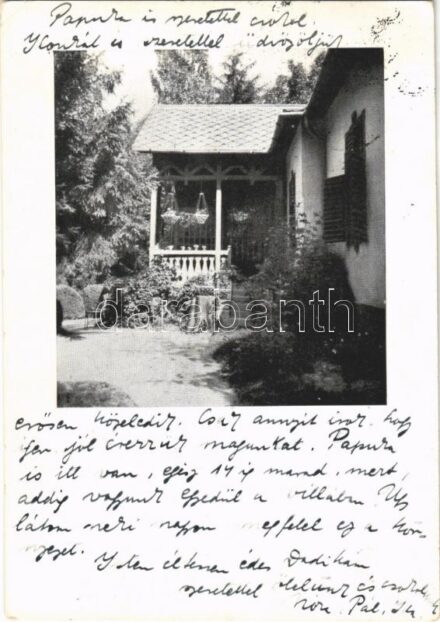 Papuka is szeretettel csókol.
Konrád is szeretettel üdvözöljük
darabanth
erősen közeledik. Csak annyit írok hogy
igen jól érezzük magunkat. Papuka
is itt van, egész 14 ig marad, mert
addig vagyunk egyedül a villában. Úgy
látom neki nagyon megfelel ez a kör-
nyezet.
Isten éltessen édes Dadikám
szeretettel ölelünk és csókol
Pál,